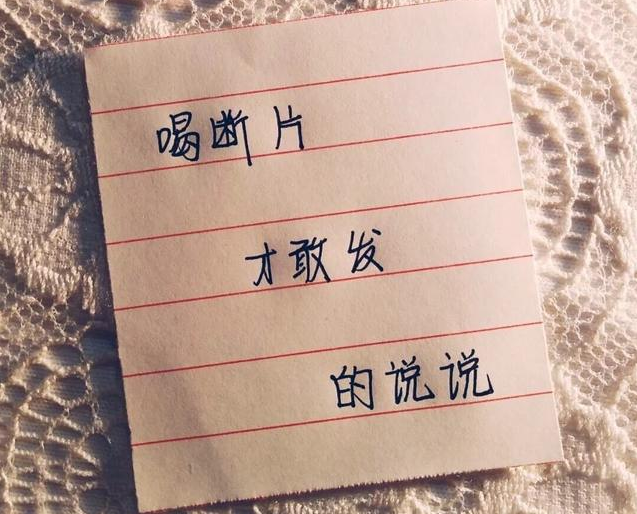 喝断片
才敢发
的说说